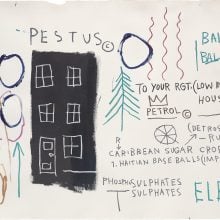 PESTUS©
TO YOUR RGT. (LOW
HOUS
PETROL©
(DETROS
CARIBBEAN SUGAR CROP
2. HAITIAN BASE BALLS (IMP
PHOSPH SULPHATES
SULPHATES